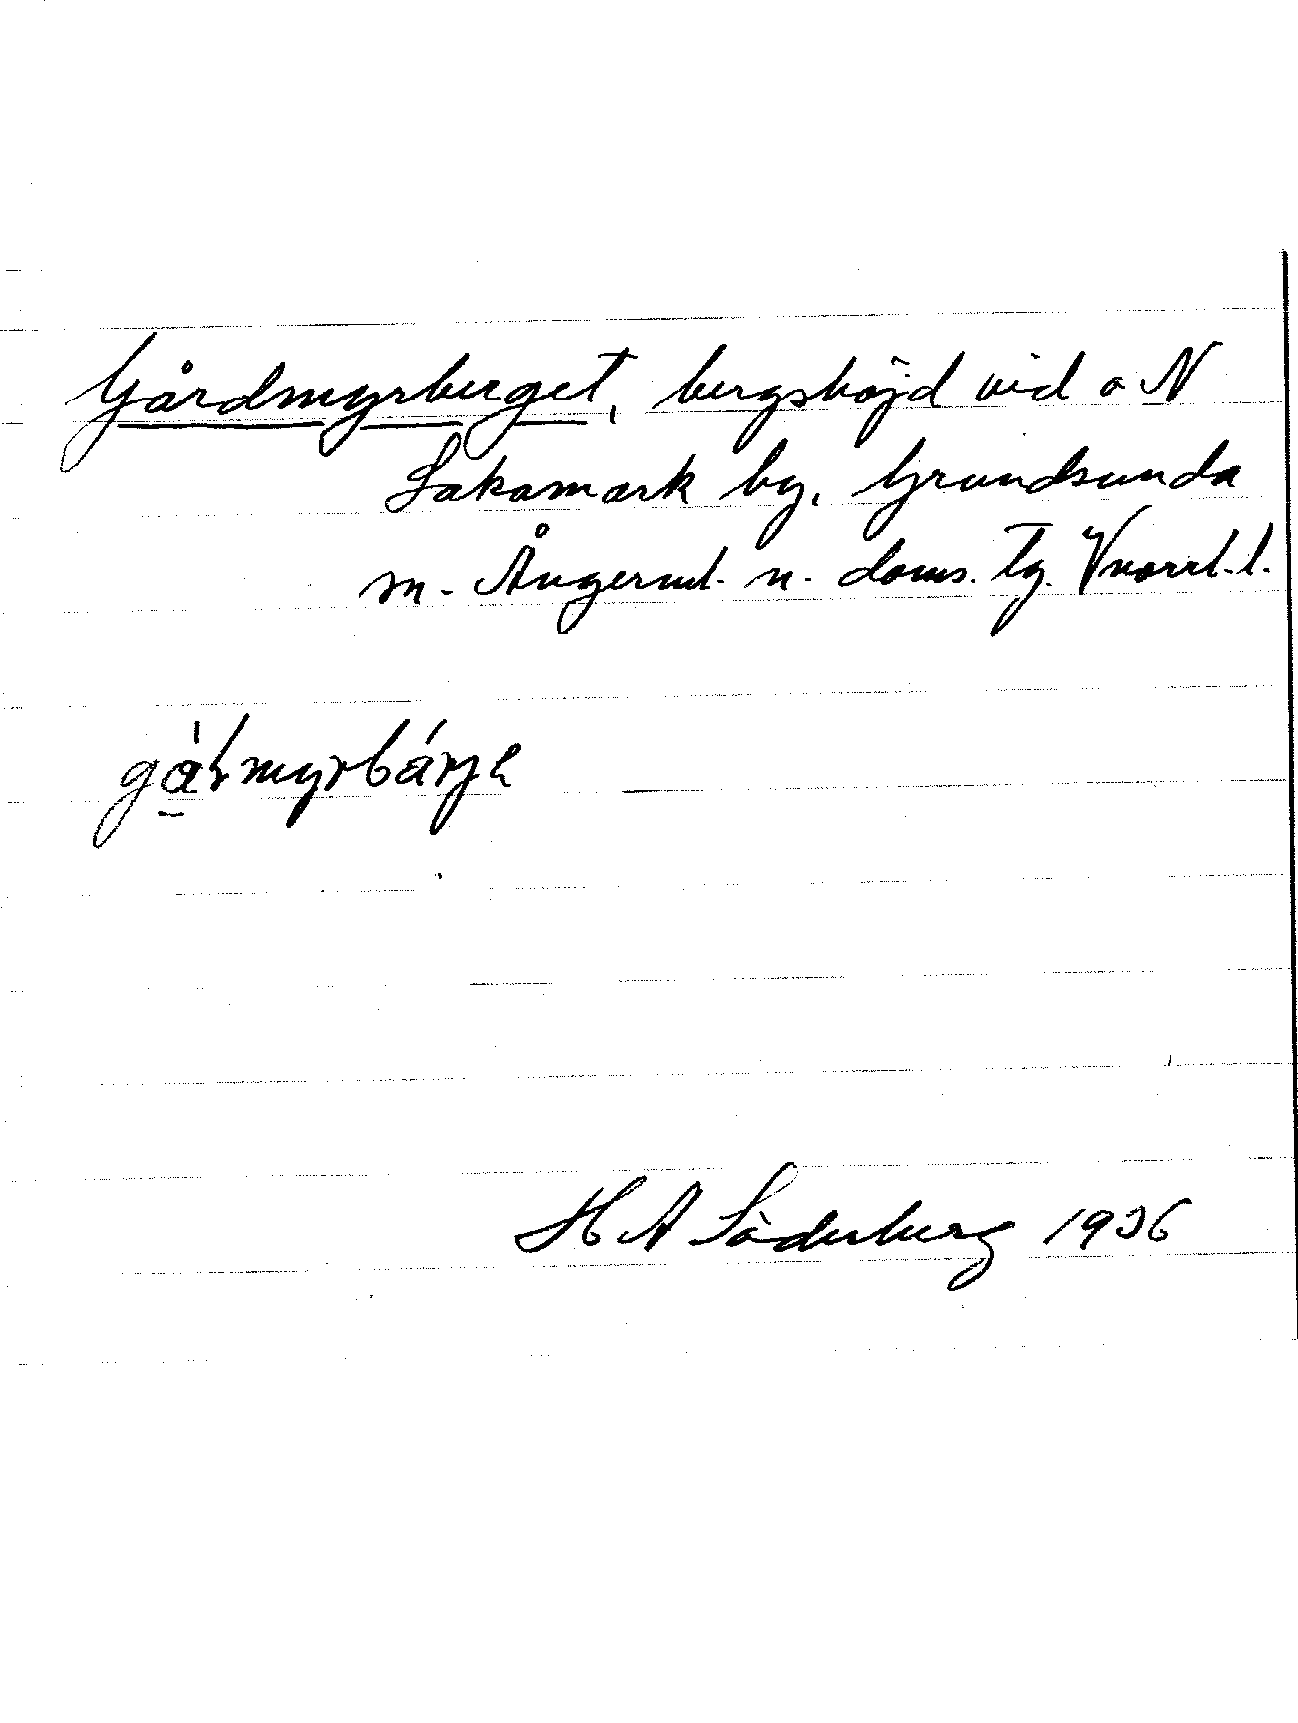 Gårdmyrberget, bergshöjd vid o N
Sakamark by, Grundsunda
m. Ångerml. n. doms. tg. Vnorrl. l.
H A Söderberg 1936